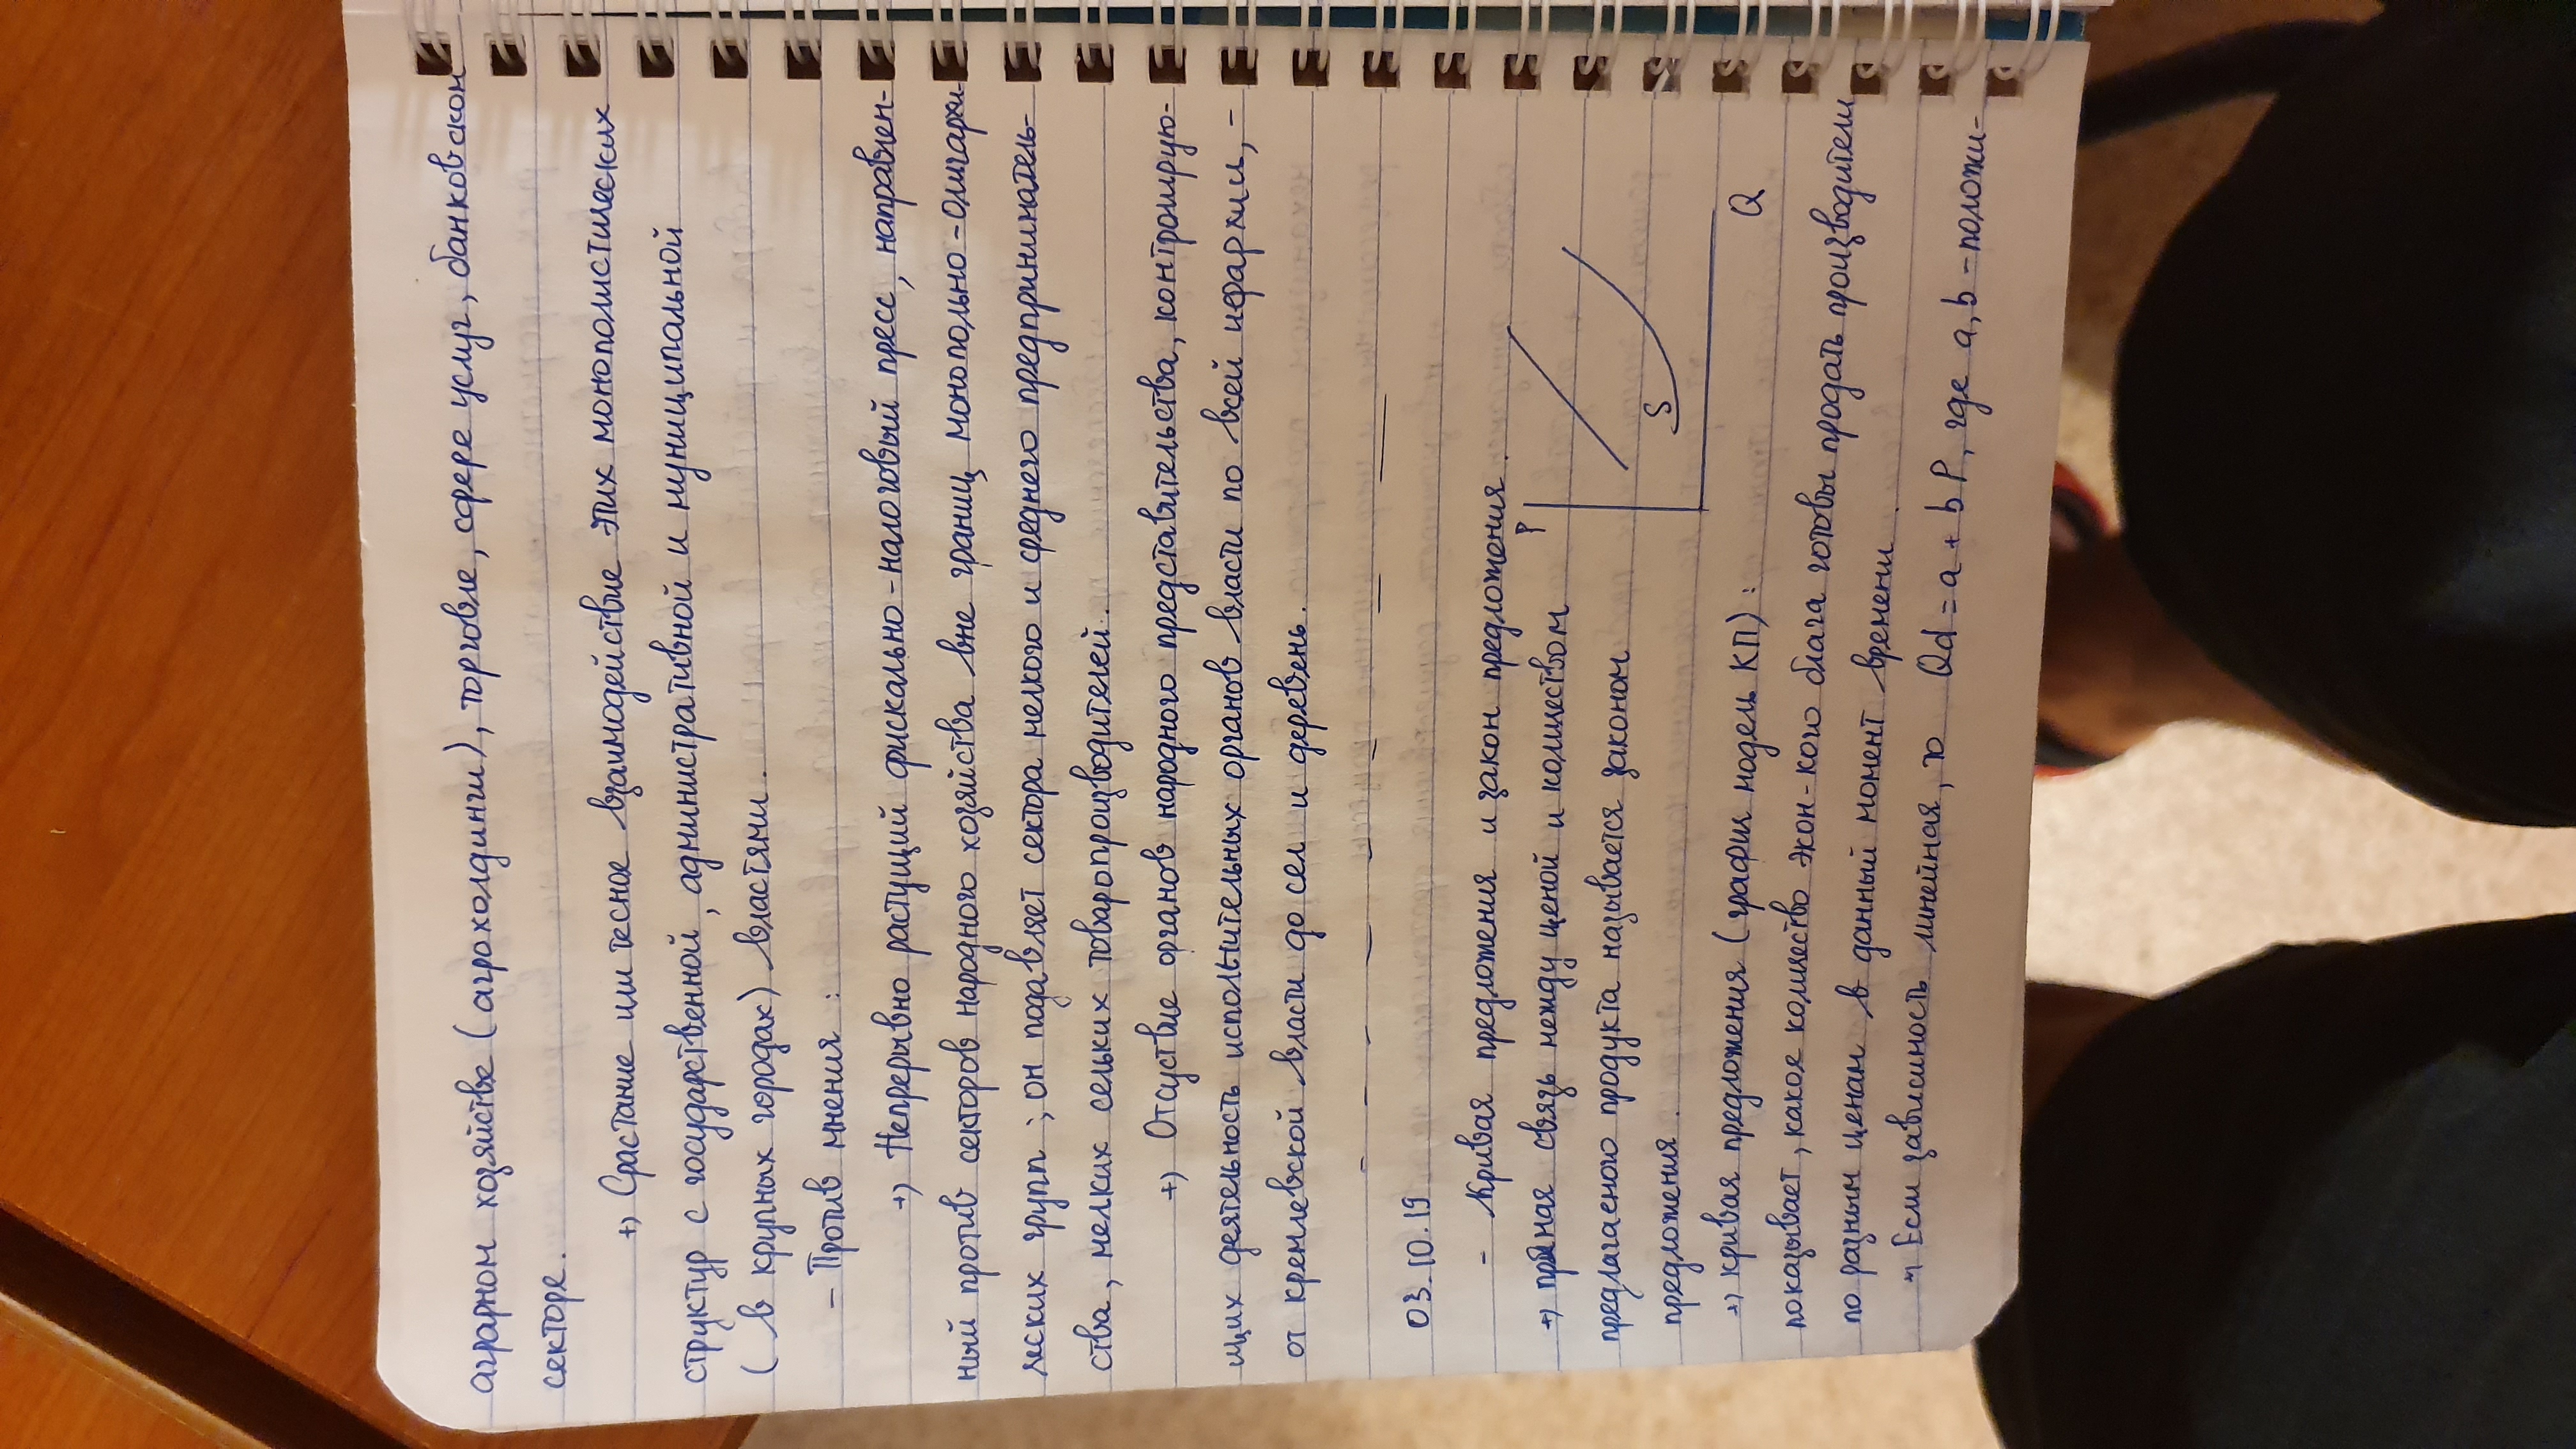 аграрном хозяйстве (агрохолдинги), торговле, сфере услуг, банковском
секторе.
+) Срастание или тесное взаимодействие этих монополистических
структур с государственной, административной и муниципальной
( в крупных городах) властями.
- Против мнения :
+) Непрерывно растущий фискально-налоговый пресс, направлен-
ный против секторов народного хозяйства вне границ монопольно-олигархи-
ческих групп ; он подавляет сектора мелкого и среднего предприниматель-
ства, мелких сельких товаропроизводителей.
+) Отсуствие органов народного представительства, контролирую-
щих деятельность исполнительных органов власти по всей иерархии, -
от кремлевской власти до сел и деревень.
03.10.19
- Кривая предложения и закон предложения.
P
+) прямая связь между ценой и количеством
предлагаемого продукта называется законом
S
предложения.
+) кривая предложения (график модель КП) :
Q
показывает, какое количество экон-кого блага готовы продать производители
по разным ценам в данный момент времени.
Если зависимость линейная, то Qd = a + bP, где a, b - положи-